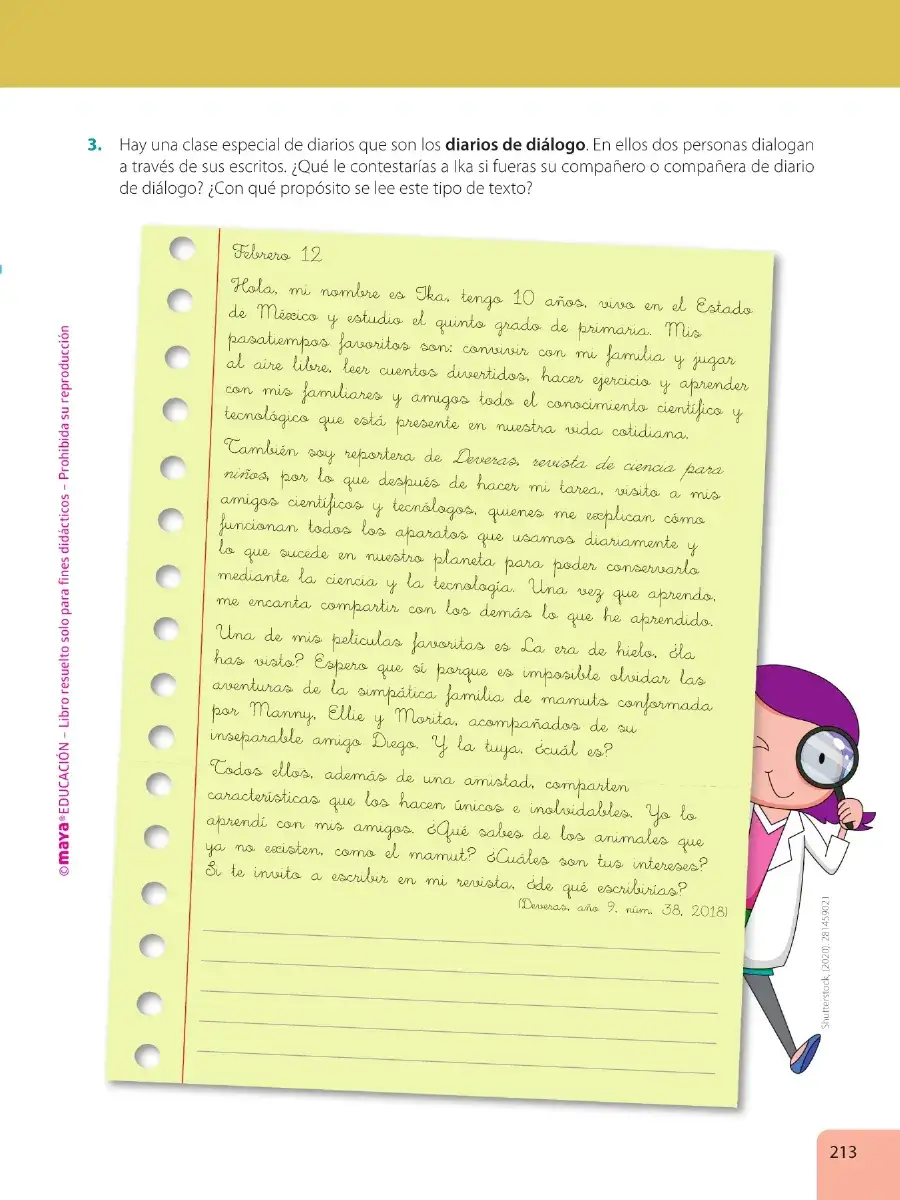 3. Hay una clase especial de diarios que son los diarios de diálogo. En ellos dos personas dialogan
a través de sus escritos. ¿Qué le contestarías a Ika si fueras su compañero o compañera de diario
de diálogo? ¿Con qué propósito se lee este tipo de texto?
Febrero 12
Hola, mi nombre es Ika, tengo 10 años, vivo en el Estado
de México y estudio el quinto grado de primaria. Mis
pasatiempos favoritos son: convivir con mi familia y jugar
al aire libre, leer cuentos divertidos, hacer ejercicio y aprender
con mis familiares y amigos todo el conocimiento científico y
tecnológico que está presente en nuestra vida cotidiana.
También soy reportera de Deveras, revista de ciencia para
niños, por lo que después de hacer mi tarea, visito a mis
amigos científicos y tecnólogos, quienes me explican cómo
funcionan todos los aparatos que usamos diariamente y
lo que sucede en nuestro planeta para poder conservarlo
mediante la ciencia y la tecnología. Una vez que aprendo,
me encanta compartir con los demás lo que he aprendido.
Una de mis películas favoritas es La era de hielo, ¿la
has visto? Espero que sí porque es imposible olvidar las
aventuras de la simpática familia de mamuts conformada
por Manny, Ellie y Morita, acompañados de su
inseparable amigo Diego. Y la tuya, ¿cuál es?
Todos ellos, además de una amistad, comparten
características que los hacen únicos e inolvidables. Yo lo
aprendí con mis amigos. ¿Qué sabes de los animales que
ya no existen, como el mamut? ¿Cuáles son tus intereses?
Si te invito a escribir en mi revista, ¿de qué escribirías?
(Deveras, año 9, núm. 38, 2018)
© maya® EDUCACIÓN – Libro resuelto solo para fines didácticos – Prohibida su reproducción
Shutterstock, (2020). 281459021
213